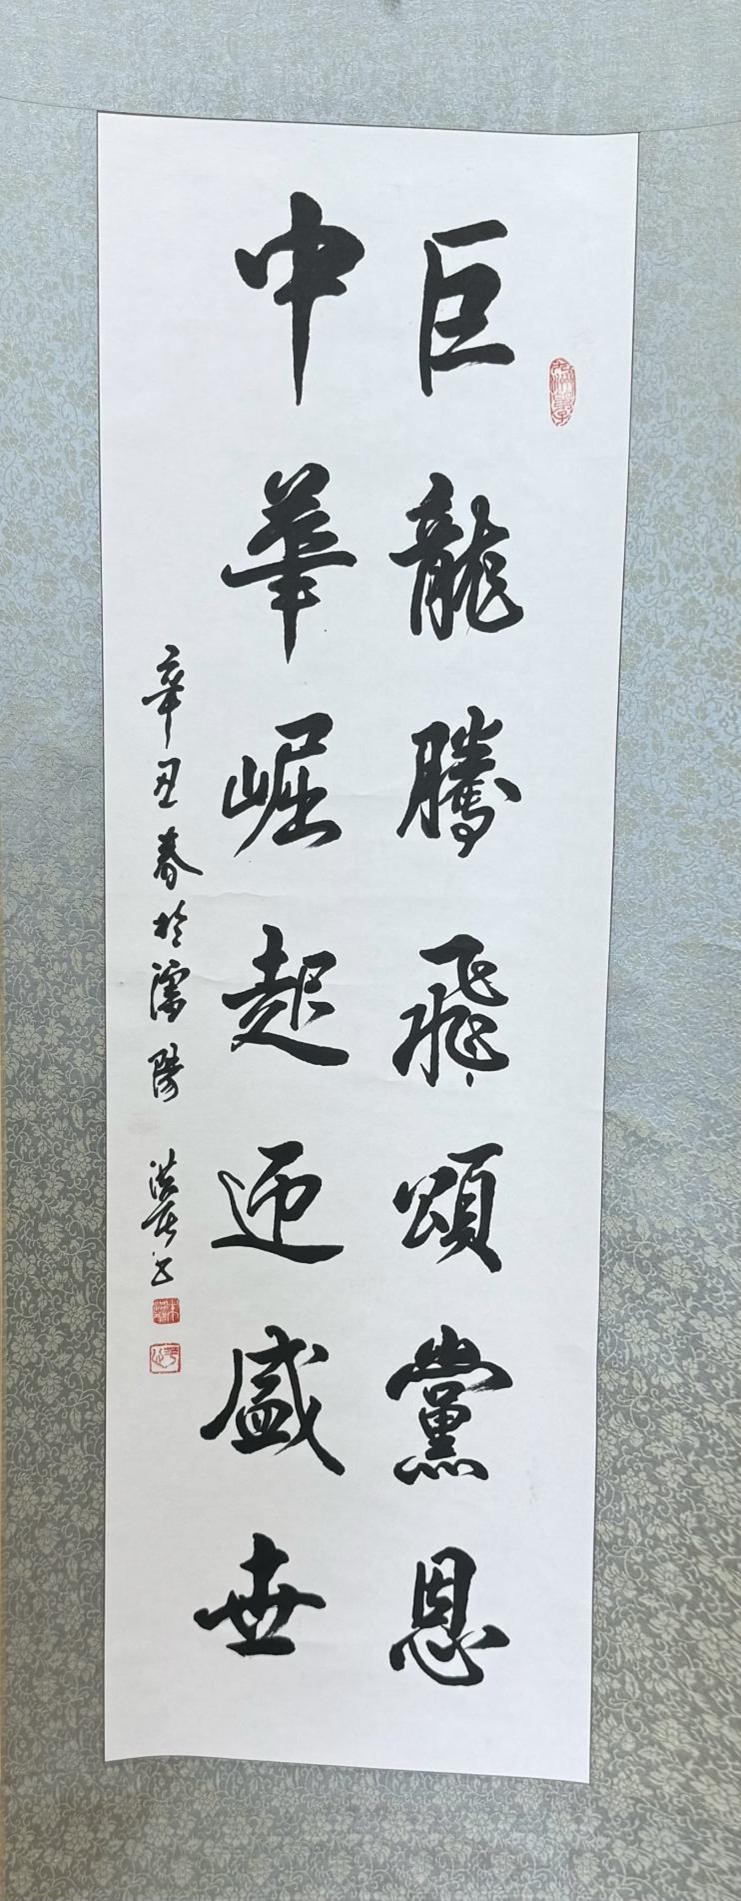 巨龍騰飛頌黨恩
中華崛起迎盛世
辛丑春於濡陽 洪